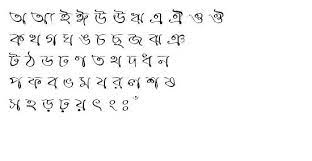 অ আ ই ঈ উ ঊ ঋ এ ঐ ও ঔ
ক খ গ ঘ ঙ চ ছ জ ঝ ঞ
ট ঠ ড ঢ ণ ত থ দ ধ ন
প ফ ব ভ ম য র ল শ ষ
স হ ড় ঢ় য় ৎ ং ঃ ঁ